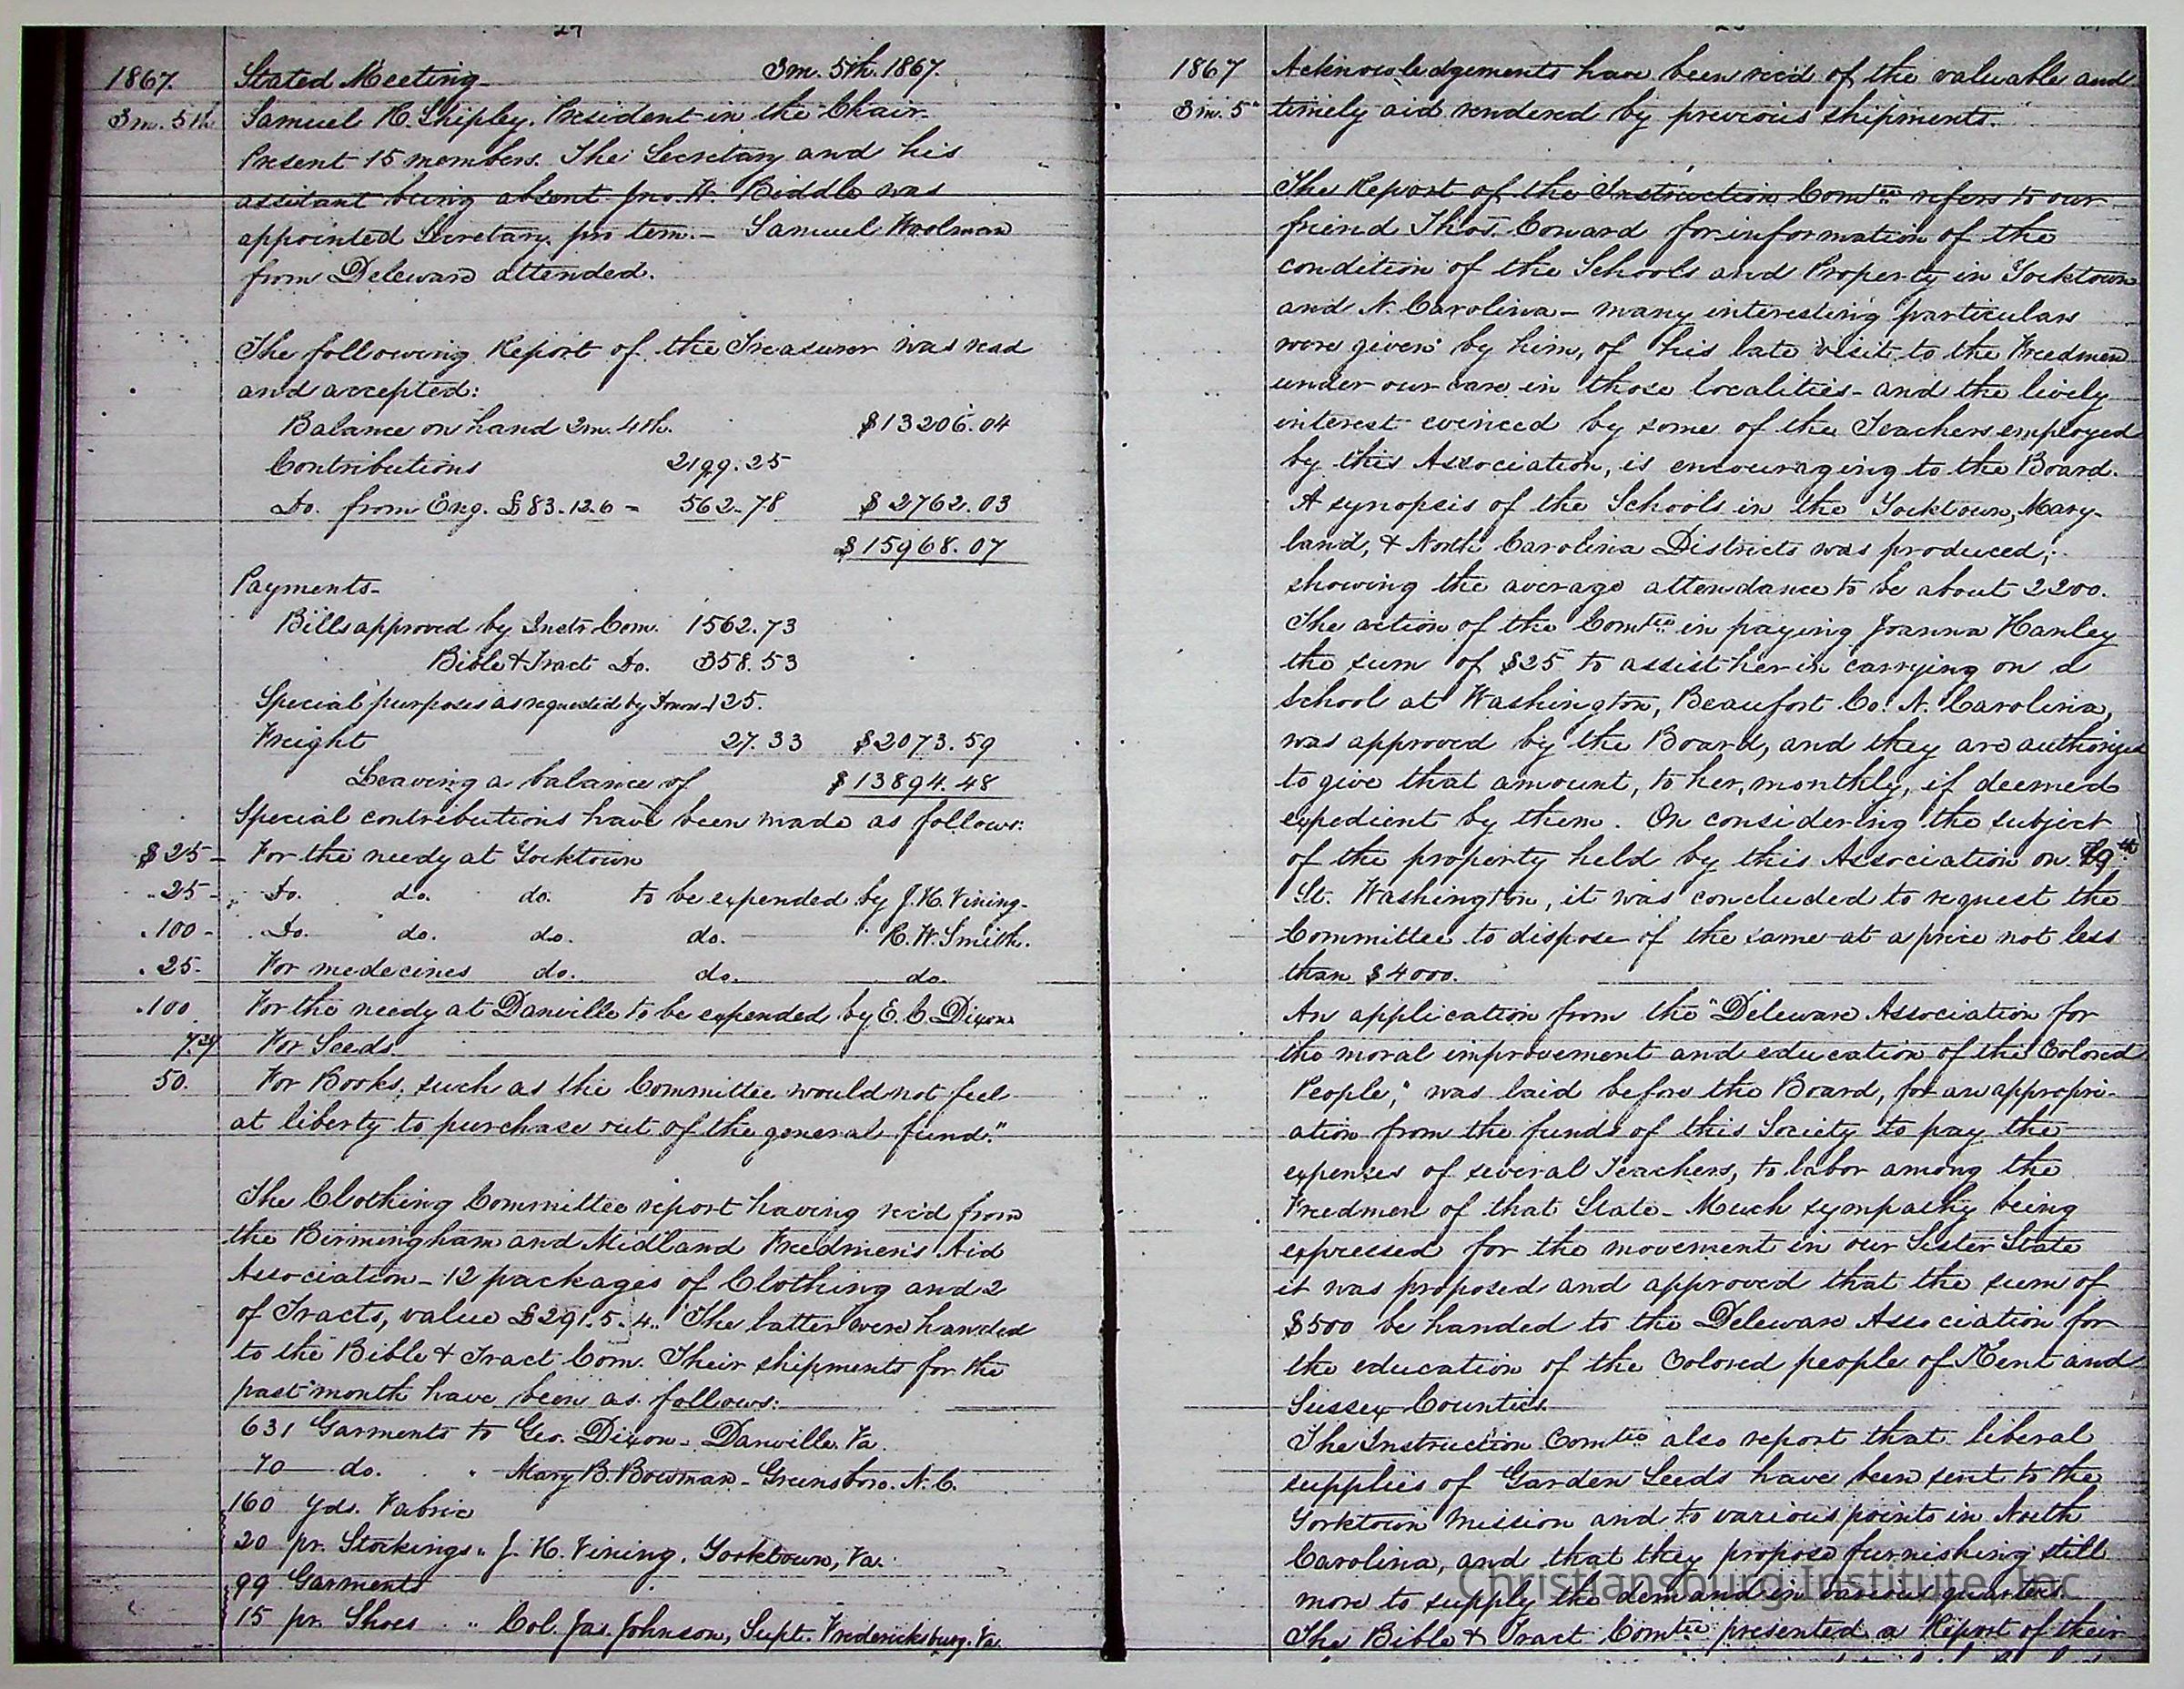 1867. Stated Meeting 3m. 5th. 1867.
3m. 5th Samuel R. Shipley. President in the Chair.
Present 15 members. The Secretary and his
assitant being absent Jno. W. Biddle was
appointed Secretary pro tem. – Samuel Woolman
from Deleware attended.
The following Report of the Treasurer was read
and accepted:
Balance on hand 2m. 4th. $13206.04
Contributions 2199.25
Do. from Eng. £83.12.6 = 562.78 $2762.03
$15968.07
Payments–
Bills approved by Instr. Com. 1562.73
Bible & Tract Do. 358.53
Special purposes as requested by Donors 125.
Freight 27.33 $2073.59
Leaving a balance of $13894.48
Special contributions have been made as follows:
$25– For the needy at Yorktown
" 25– Do. do. do. to be expended by J. H. Vining–
" 100– Do. do. do. do. – R. W. Smith.
" 25– For medecines do. do. do.
" 100 For the needy at Danville to be expended by E. C. Dixon
For Seeds
50. For Books, such as the Committee would not feel
at liberty to purchase out of the general fund."
The Clothing Committee report having rec'd from
the Birmingham and Midland Freedmen's Aid
Association – 12 packages of Clothing and 2
of Tracts, value £291.5.4. The latter were handed
to the Bible & Tract Com. Their shipments for the
past month have been as follows:
631 Garments to Geo. Dixon – Danville. Va.
70 do. " Mary B. Bowman – Greensboro. N. C.
160 yds. Fabric
20 pr. Stockings " J. H. Vining. Yorktown, Va.
99 Garments
15 pr. Shoes " Col. Jas. Johnson, Supt. Fredericksburg. Va.
1867 Acknowledgements have been rec'd of the valuable and
3m. 5" timely aid rendered by previous shipments.
The Report of the Instruction Comtee refers to our
friend Thos. Conard for information of the
condition of the Schools and Property in Yorktown
and N. Carolina – many interesting particulars
were given by him, of his late visit to the Freedmen
under our care in those localities – and the lively
interest evinced by some of the Teachers employed
by this Association, is encouraging to the Board.
A synopsis of the Schools in the Yorktown, Mary-
land, & North Carolina Districts was produced;
showing the average attendance to be about 2200.
The action of the Comtee in paying Joanna Hanley
the sum of $25 to assist her in carrying on a
School at Washington, Beaufort Co. N. Carolina,
was approved by the Board, and they are authorized
to give that amount, to her, monthly, if deemed
expedient by them. On considering the subject
of the property held by this Association on
St. Washington, it was concluded to request the
Committee to dispose of the same at a price not less
than $4000.
An application from the "Deleware Association for
the moral improvement and education of the Colored
People," was laid before the Board, for an appropri-
ation from the funds of this Society to pay the
expenses of several Teachers, to labor among the
Freedmen of that State – Much sympathy being
expressed for the movement in our Sister State
it was proposed and approved that the sum of
$500 be handed to the Deleware Association for
the education of the Colored people of Kent and
Sussex Counties.
The Instruction Comtee also report that liberal
supplies of Garden Seeds have been sent to the
Yorktown Mission and to various points in North
Carolina, and that they propose furnishing still
more to supply the demand in various quarters.
The Bible & Tract Comtee presented a Report of their
Christiansburg Institute, Inc